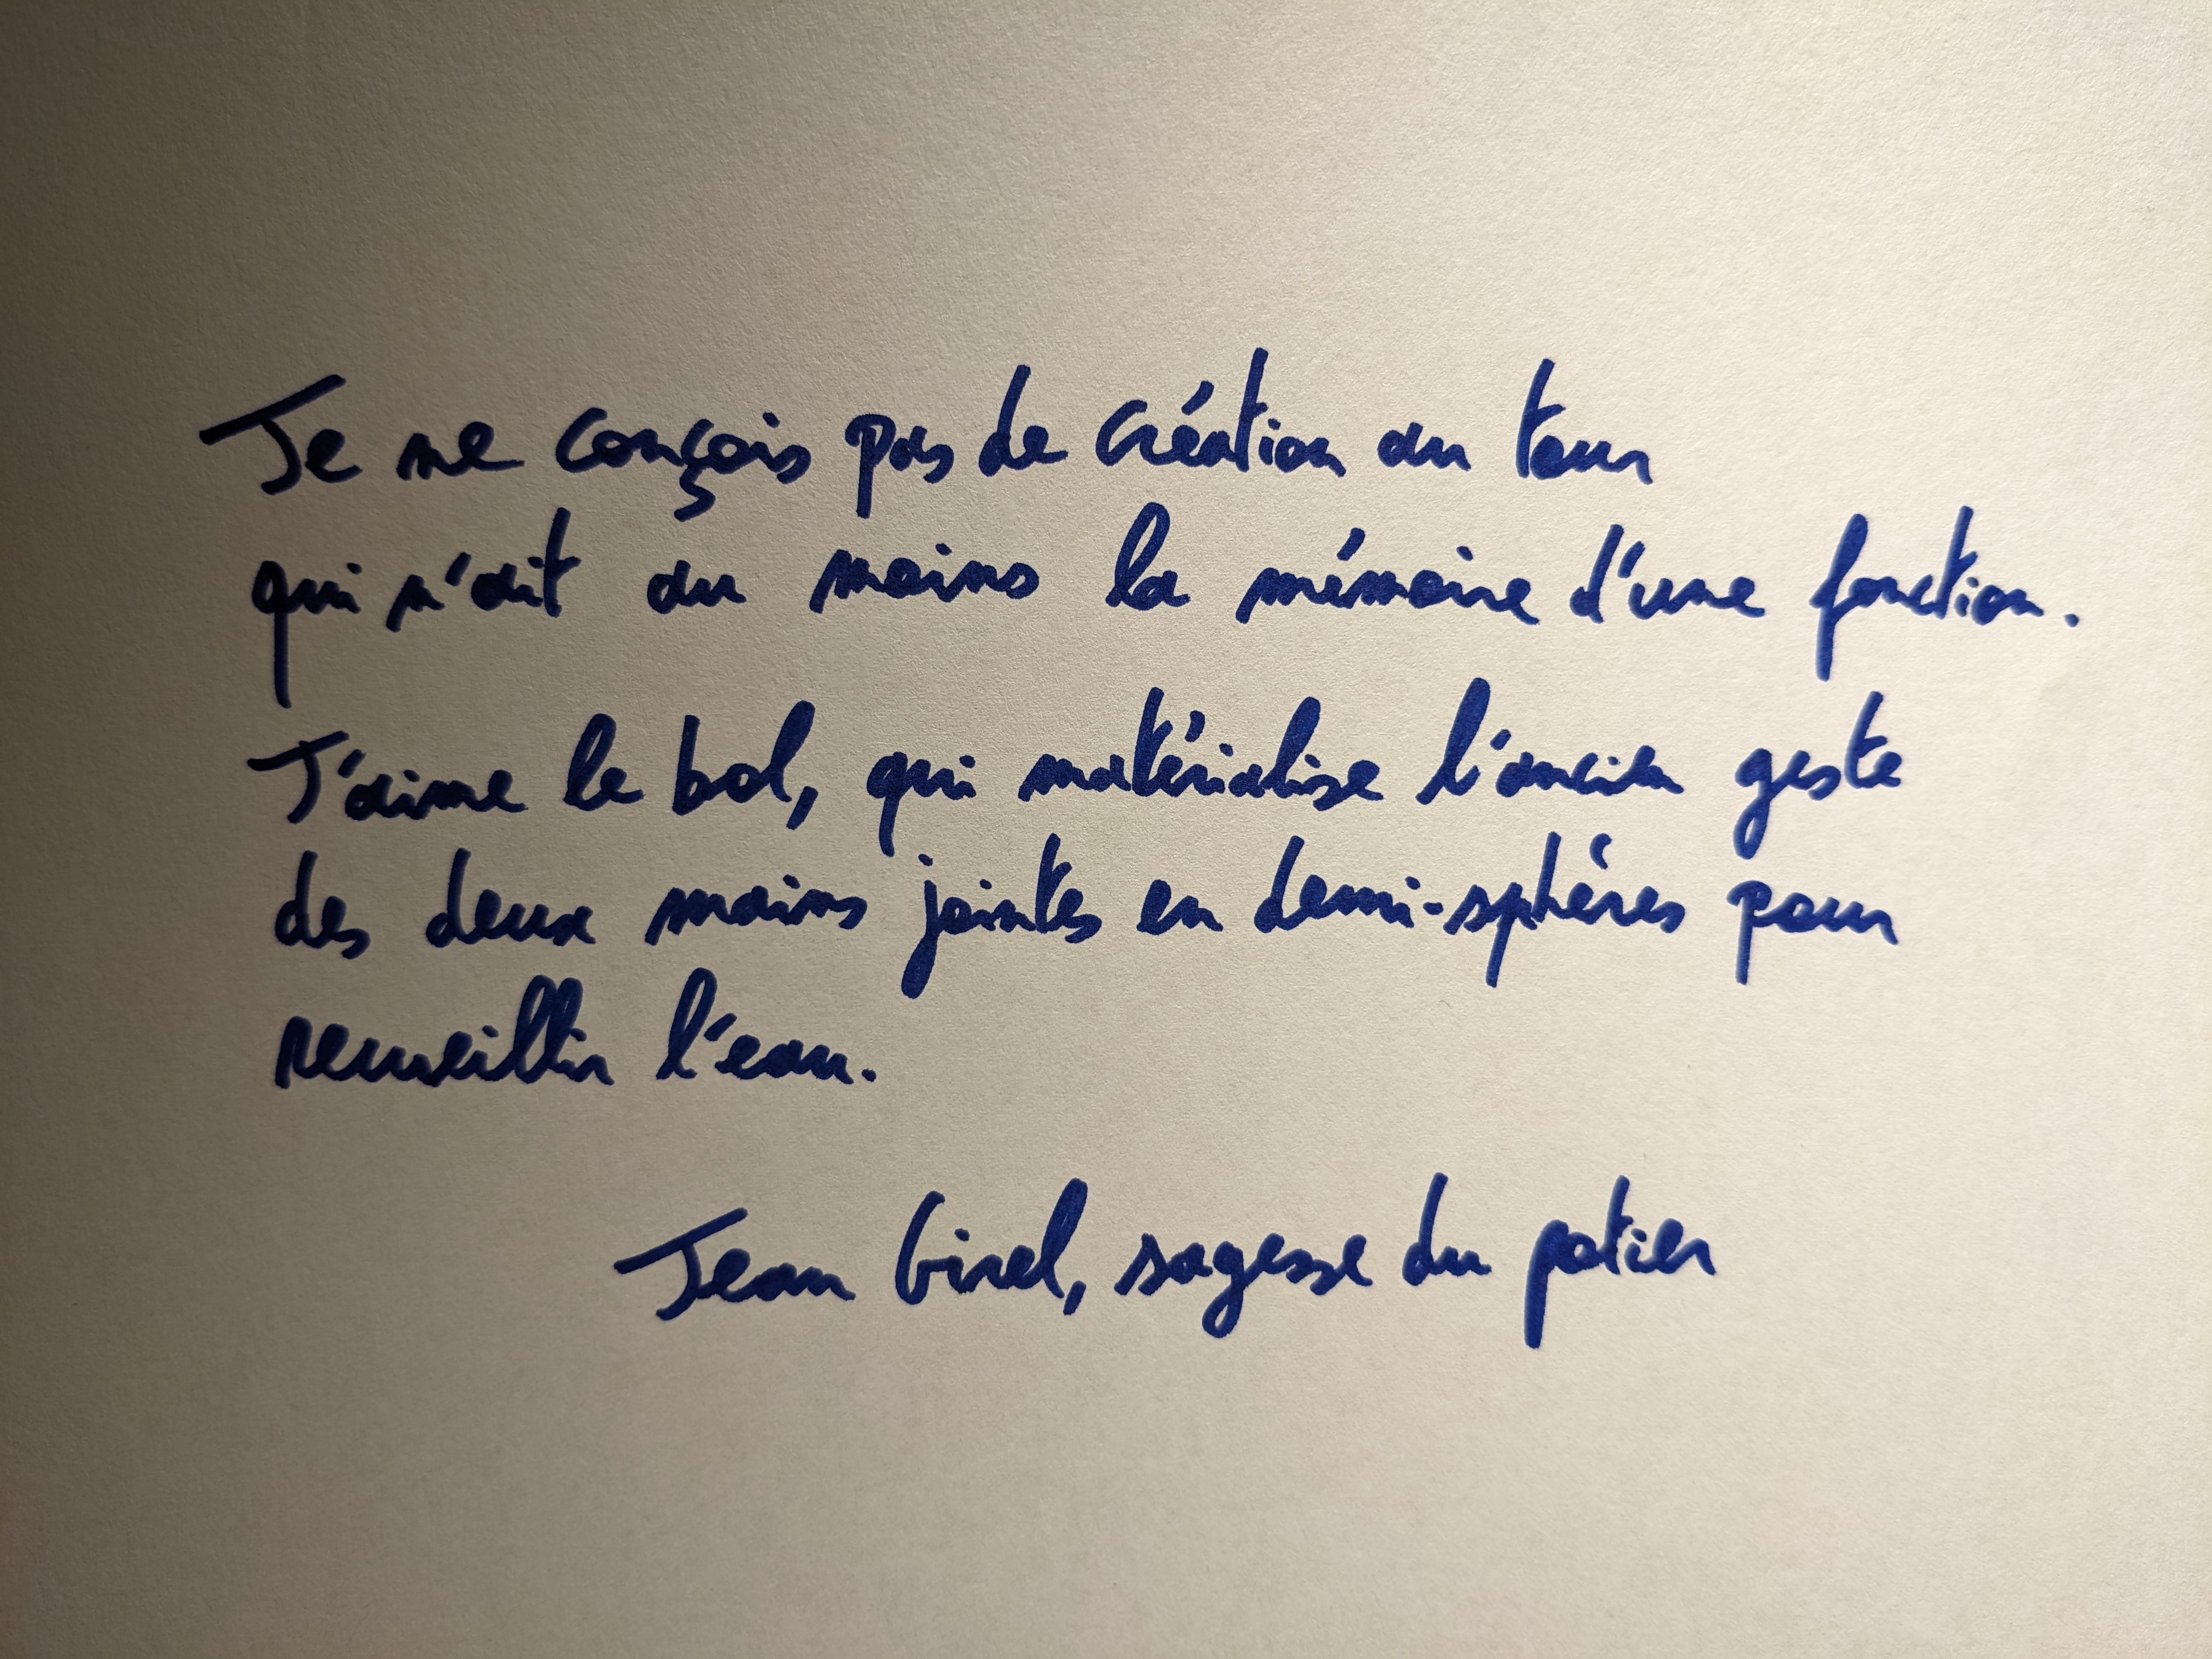 Je ne conçois pas de création au tour
qui n'ait au moins la mémoire d'une fonction.
J'aime le bol, qui matérialise l'ancien geste
des deux mains jointes en demi-sphères pour
recueillir l'eau.
Jean Girel, sagesse du potier